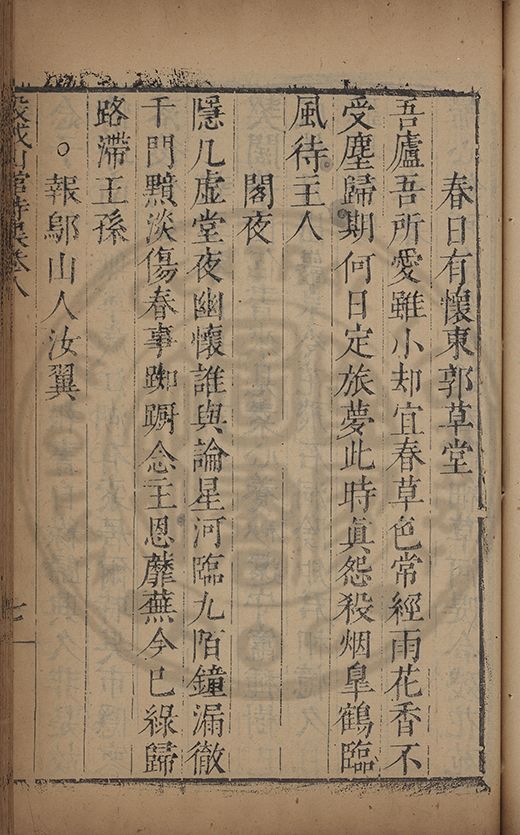 春日有懷東郭草堂
吾廬吾所愛雖小却宜春草色常經雨花香不
受塵歸期何日定旅夢此時眞怨殺烟皐鶴臨
風待主人
閣夜
隱几虛堂夜幽懷誰與論星河臨九陌鐘漏徹
千門黯淡傷春事踟蹰念主恩蘼蕪今已綠歸
路滯王孫
○報鄔山人汝翼
館詩集卷八
七